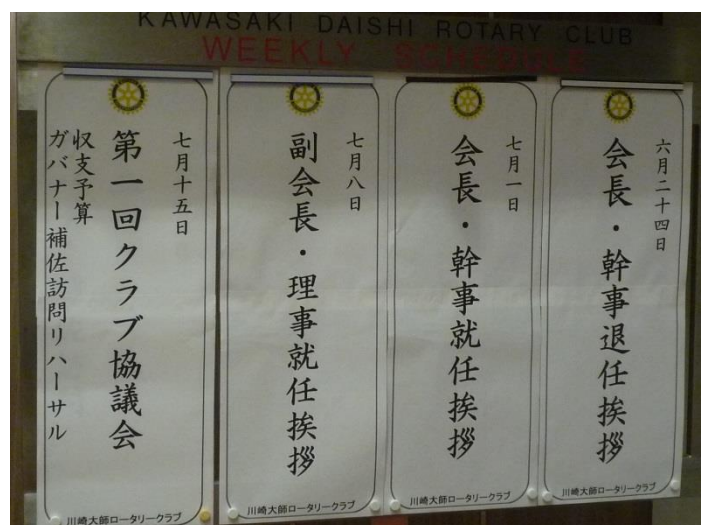 KAWASAKI DAISHI ROTARY CLUB
WEEKLY SCHEDULE
六月二十四日
会長・幹事退任挨拶
川崎大師ロータリークラブ
七月一日
会長・幹事就任挨拶
川崎大師ロータリークラブ
七月八日
副会長・理事就任挨拶
川崎大師ロータリークラブ
七月十五日
第一回クラブ協議会
収支予算
ガバナー補佐訪問リハーサル
川崎大師ロータリークラブ